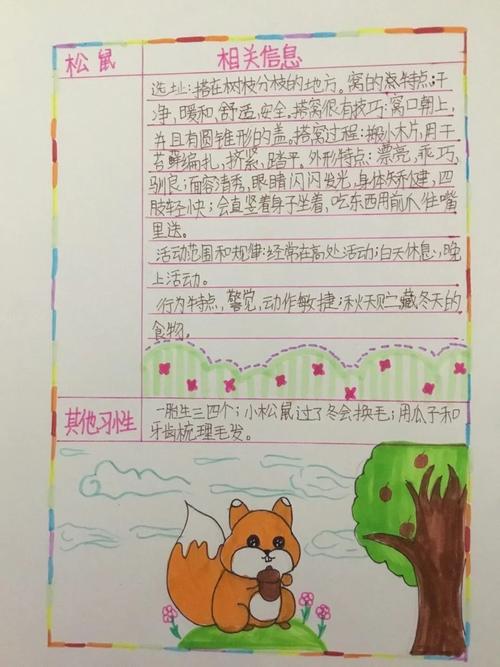 松鼠
相关信息
选址:搭在树枝分枝的地方。窝的特点:干
净,暖和,舒适,安全。搭窝很有技巧:窝口朝上,
并且有圆锥形的盖。搭窝过程:搬小木片,用干
苔藓编扎,挤紧,踏平。外形特点:漂亮,乖巧,
驯良;面容清秀,眼睛闪闪发光,身体矫健,四
肢轻快;会直竖着身子坐着,吃东西用前爪往嘴
里送。
活动范围和规律:经常在高处活动;白天休息,晚
上活动。
行为特点,警觉,动作敏捷;秋天贮藏冬天的
食物。
其他习性
一胎生三四个;小松鼠过了冬会换毛;用瓜子和
牙齿梳理毛发。